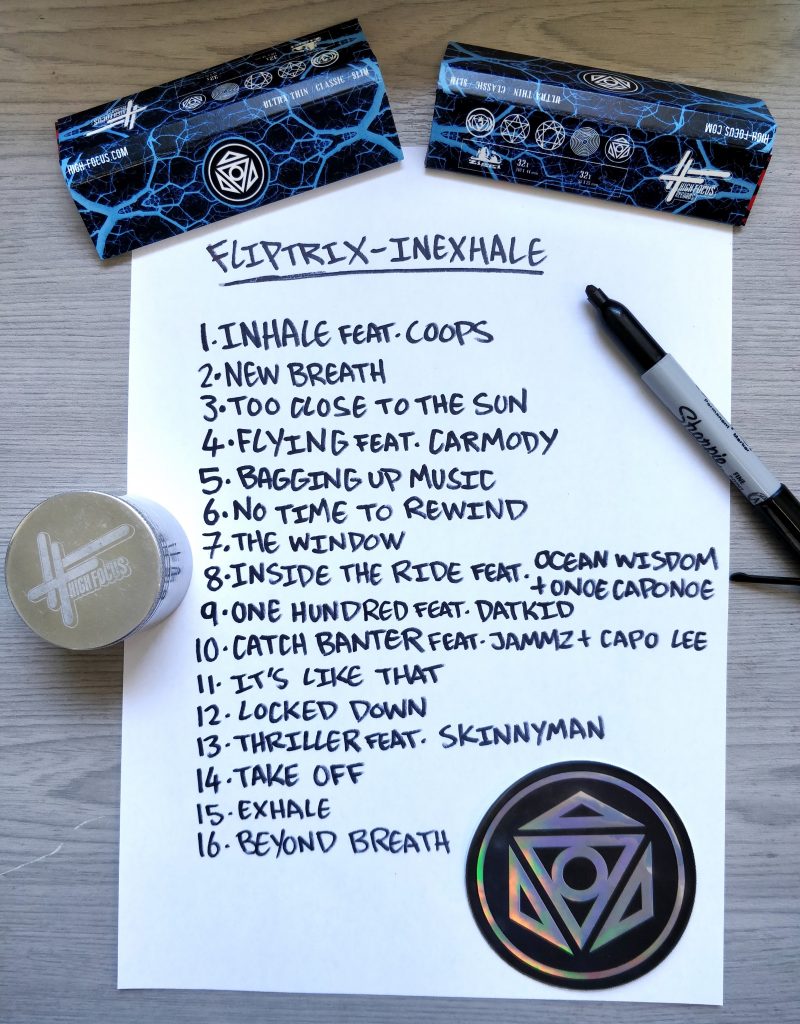 ULTRA THIN / CLASSIC - SLIM
HIGH-FOCUS.COM
ULTRA THIN / CLASSIC - SLIM
HIGH-FOCUS.COM
32s
32s
HIGH FOCUS
FLIPTRIX-INEXHALE
1. INHALE FEAT. COOPS
2. NEW BREATH
3. TOO CLOSE TO THE SUN
4. FLYING FEAT. CARMODY
5. BAGGING UP MUSIC
6. NO TIME TO REWIND
7. THE WINDOW
8. INSIDE THE RIDE FEAT. OCEAN WISDOM
+ ONOE CAPONOE
9. ONE HUNDRED FEAT. DATKID
10. CATCH BANTER FEAT. JAMMZ + CAPO LEE
11. IT'S LIKE THAT
12. LOCKED DOWN
13. THRILLER FEAT. SKINNYMAN
14. TAKE OFF
15. EXHALE
16. BEYOND BREATH
HIGH FOCUS
Permanent Marker
Sharpie
FINE